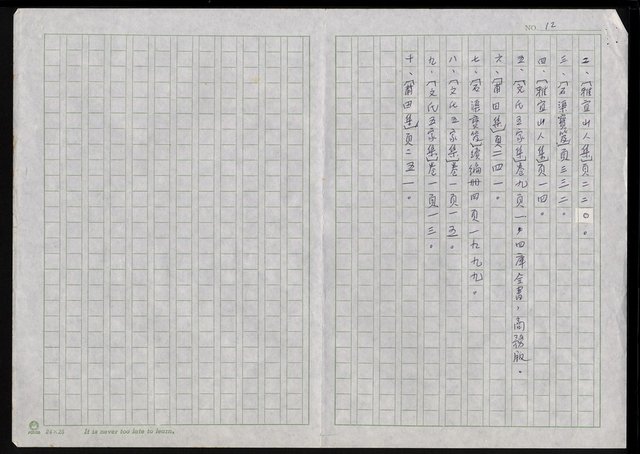 NO. 12
二、〔雅宜山人集〕頁二二〇。
三、〔石渠寶笈〕頁三三二。
四、〔雅宜山人集〕頁一四。
五、〔文氏五家集〕卷九頁一，四庫全書，商務版。
六、〔莆田集〕頁二四一。
七、〔石渠寶笈〕續編冊四頁一九九九。
八、〔文氏五家集〕卷一頁一五。
九、〔文氏五家集〕卷一頁一三。
十、〔莆田集〕頁二五一。
24×25 It is never too late to learn.